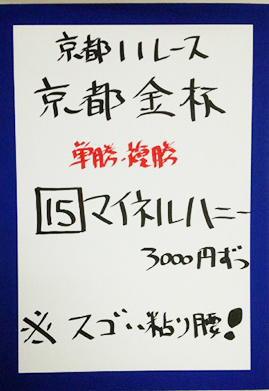 京都11レース
京都金杯
単勝・複勝
15マイネルハニー
3000円ずつ
※スゴい粘り腰!